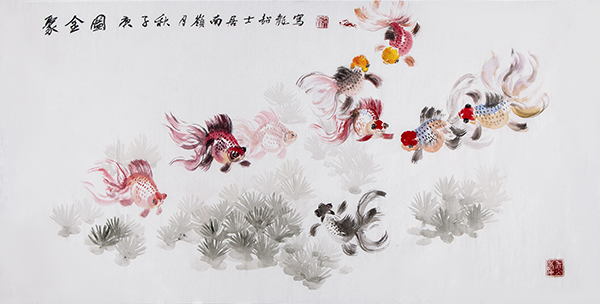 聚金圖 庚子秋月嶺南居士寫